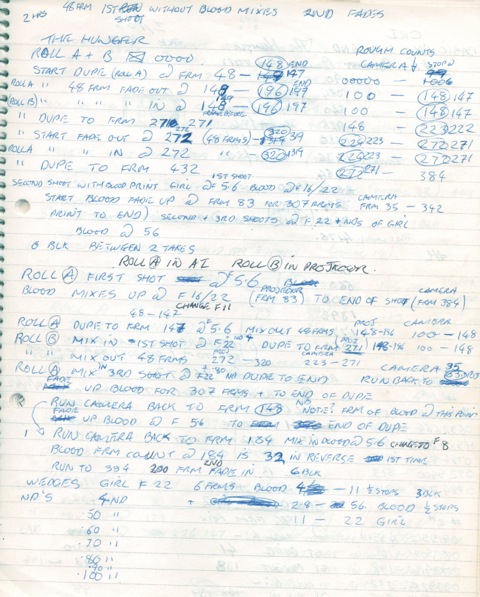 2 HRS 48 FRM 1ST SHOOT WITHOUT BLOOD MIXES 2ND FADES
THE HUNGER
ROLL A + B 0000. 148 END ROUGH COUNTS
START DUPE (ROLL A) @ FRM 48 - 147 CAMERA STOP @
ROLL A " 48 FRM FADE OUT @ 148 - 196 197 END 00000 - 1006
ROLL B " " " " IN @ 148 - 196 197 100 - 148 147
" DUPE TO FRM 271 100 - 148 147
" START FADE OUT @ 272 (48 FRMS) 320 319 148 - 223 222
ROLL A " " IN @ 272 " 320 319 224 223 - 272 271
" DUPE TO FRM 432 224 223 - 272 271
1ST SHOOT 272 271 - 384
SECOND SHOOT WITH BLOOD PRINT GIRL @ 5.6 BLOOD @ F16/22
START BLOOD FADE UP @ FRM 83 FOR 307 FRMS CAMERA FRM 35 - 342
PRINT TO END) SECOND + 3RD SHOOTS @ F 22 + ND'S OF GIRL
BLOOD @ 56
6 BLK BETWEEN 2 TAKES
ROLL A IN A I ROLL B IN PROJECTOR.
ROLL A FIRST SHOT @ 5.6
BLOOD MIXES UP @ F 16/22 PROJECTOR (FRM 83) TO END OF SHOT CAMERA (FRM 384)
48 - 147 CHANGE F11
ROLL A DUPE TO FRM 147 @ 5.6 MIX OUT 48 FRMS PROJ 148 - 196 CAMERA 100 - 148
ROLL B MIX IN 1ST SHOOT @ F22 DUPE TO FRM PROJ 271 148 - 196 100 - 148
" " MIX OUT 48 FRMS PROJ 272 - 320 CAMERA 223 - 271
ROLL A MIX IN 3RD SHOOT @ F22 ND DUPE TO END CAMERA 35
FADE UP BLOOD FOR 307 FRMS + TO END OF DUPE RUN BACK TO
RUN CAMERA BACK TO FRM 148 NOTE: NO FRM OF BLOOD @ THIS POINT
FADE UP BLOOD @ F 56 TO END OF DUPE
1 RUN CAMERA BACK TO FRM 184 MIX IN BLOOD @ 5.6 CHANGE TO F 8
BLOOD FRM COUNT @ 184 IS 32 IN REVERSE 1ST TIME
RUN TO 384 200 FRM 2ND FADES IN 6 BLK
WEDGES GIRL F 22 6 FRMS BLOOD 4 - 11 ½ STOPS 3 BLK
ND'S 4 ND + 2.8 - 56 BLOOD ½ STOPS
50 " 11 - 22 GIRL
60 "
70 "
80 "
90 "
100 "